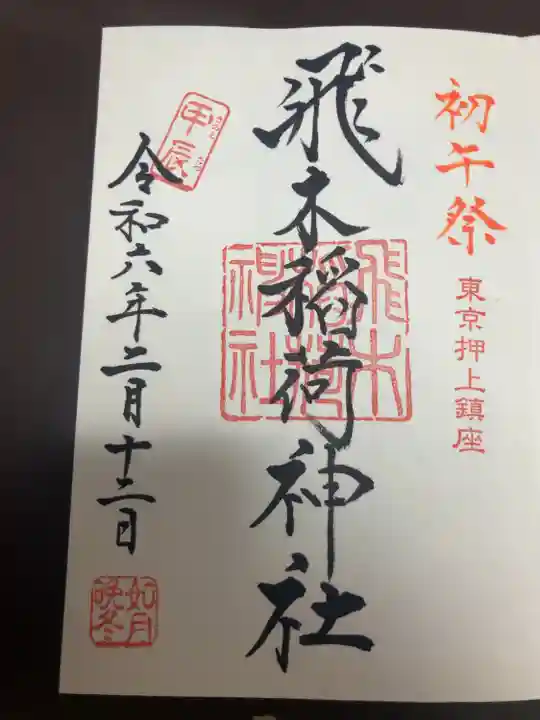 初午祭
東京押上鎮座
飛木稲荷神社
飛木稲荷神社
甲辰
きのえ
たつ
令和六年二月十二日
如月
晩冬